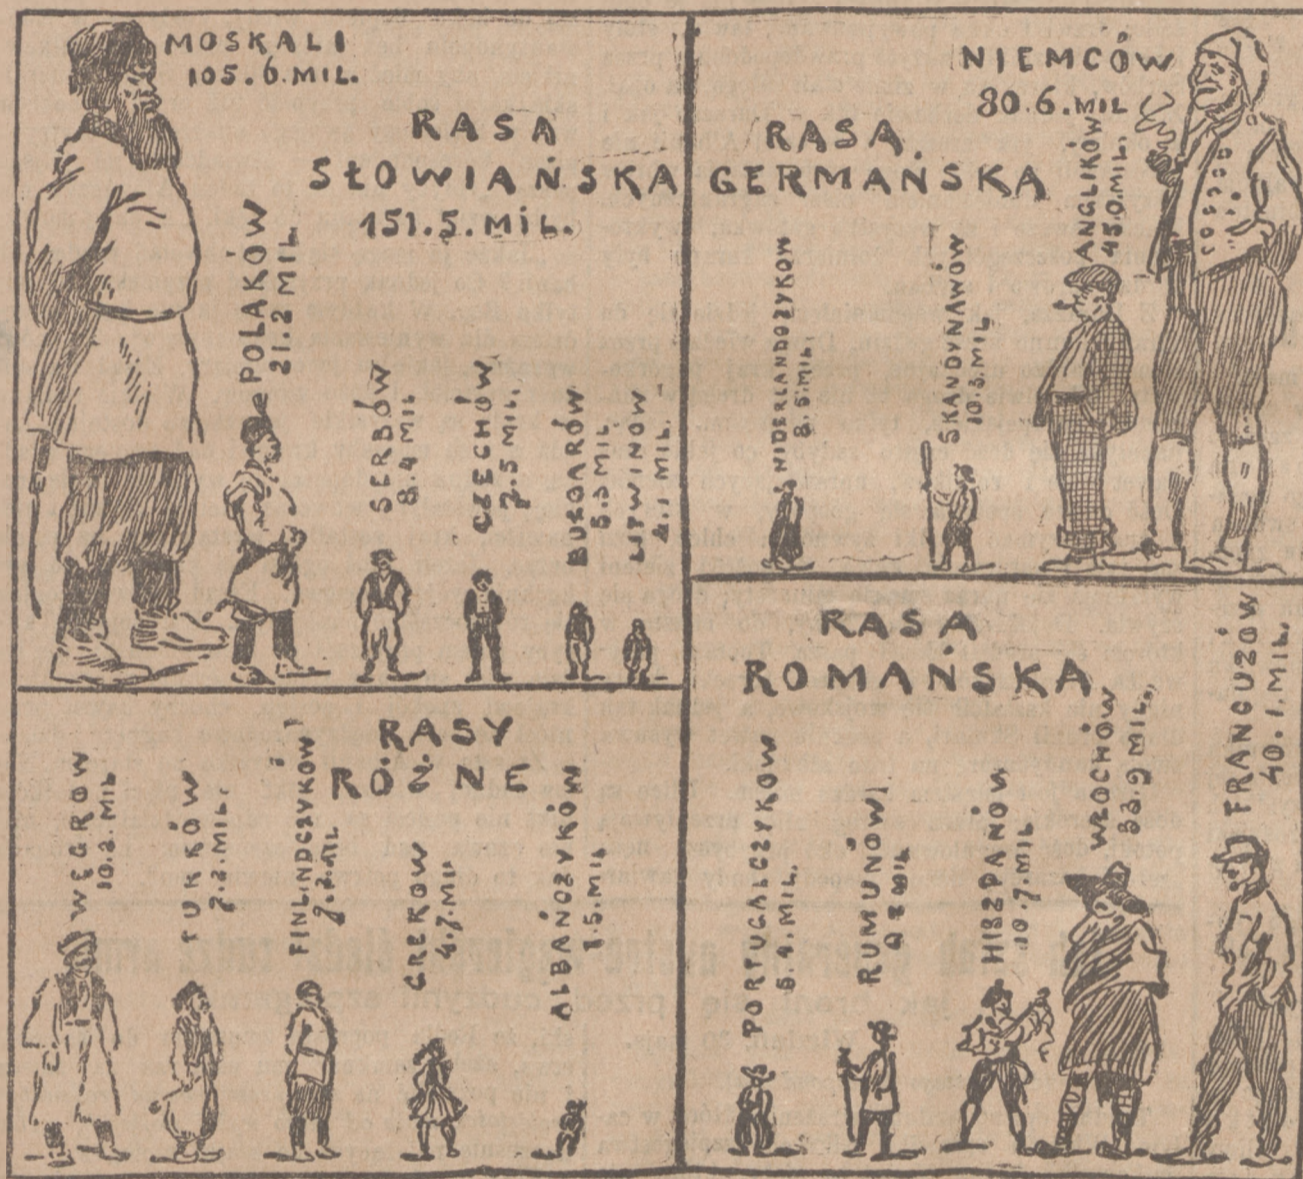 MOSKALI
105.6.MIL.
RASA
SŁOWIAŃSKA
151.5.MIL.
POLAKÓW
21.2 MIL.
SERBÓW
8.4 MIL
CZECHÓW
7.5 MIL.
BUŁGARÓW
5.5 MIL
LITWINOW
4.1 MIL.
RASA
GERMAŃSKA
NIEMCÓW
80.6.MIL
ANGLIKÓW
45.0.MIL.
NIDERLANDOZYKOW
8.5.MIL
SKANDYNAWÓW
10.5.MIL
RASY
RÓŻNE
WĘGROW
10.2.MIL
TURKÓW
7.2.MIL.
FINLINDCZYKÓW
7.2.MIL
GREKOW
4.7.MIL
ALBAŃOZYKÓW
1.5.MIL
RASA
ROMAŃSKA
PORTUGALCZYKOW
5.4.MIL.
RUMUNÓW
9.8 MIL
HISZPANÓW
19.7.MIL
WŁOCHÓW
33.9 MIL.
FRANCUZÓW
40.1.MIL.